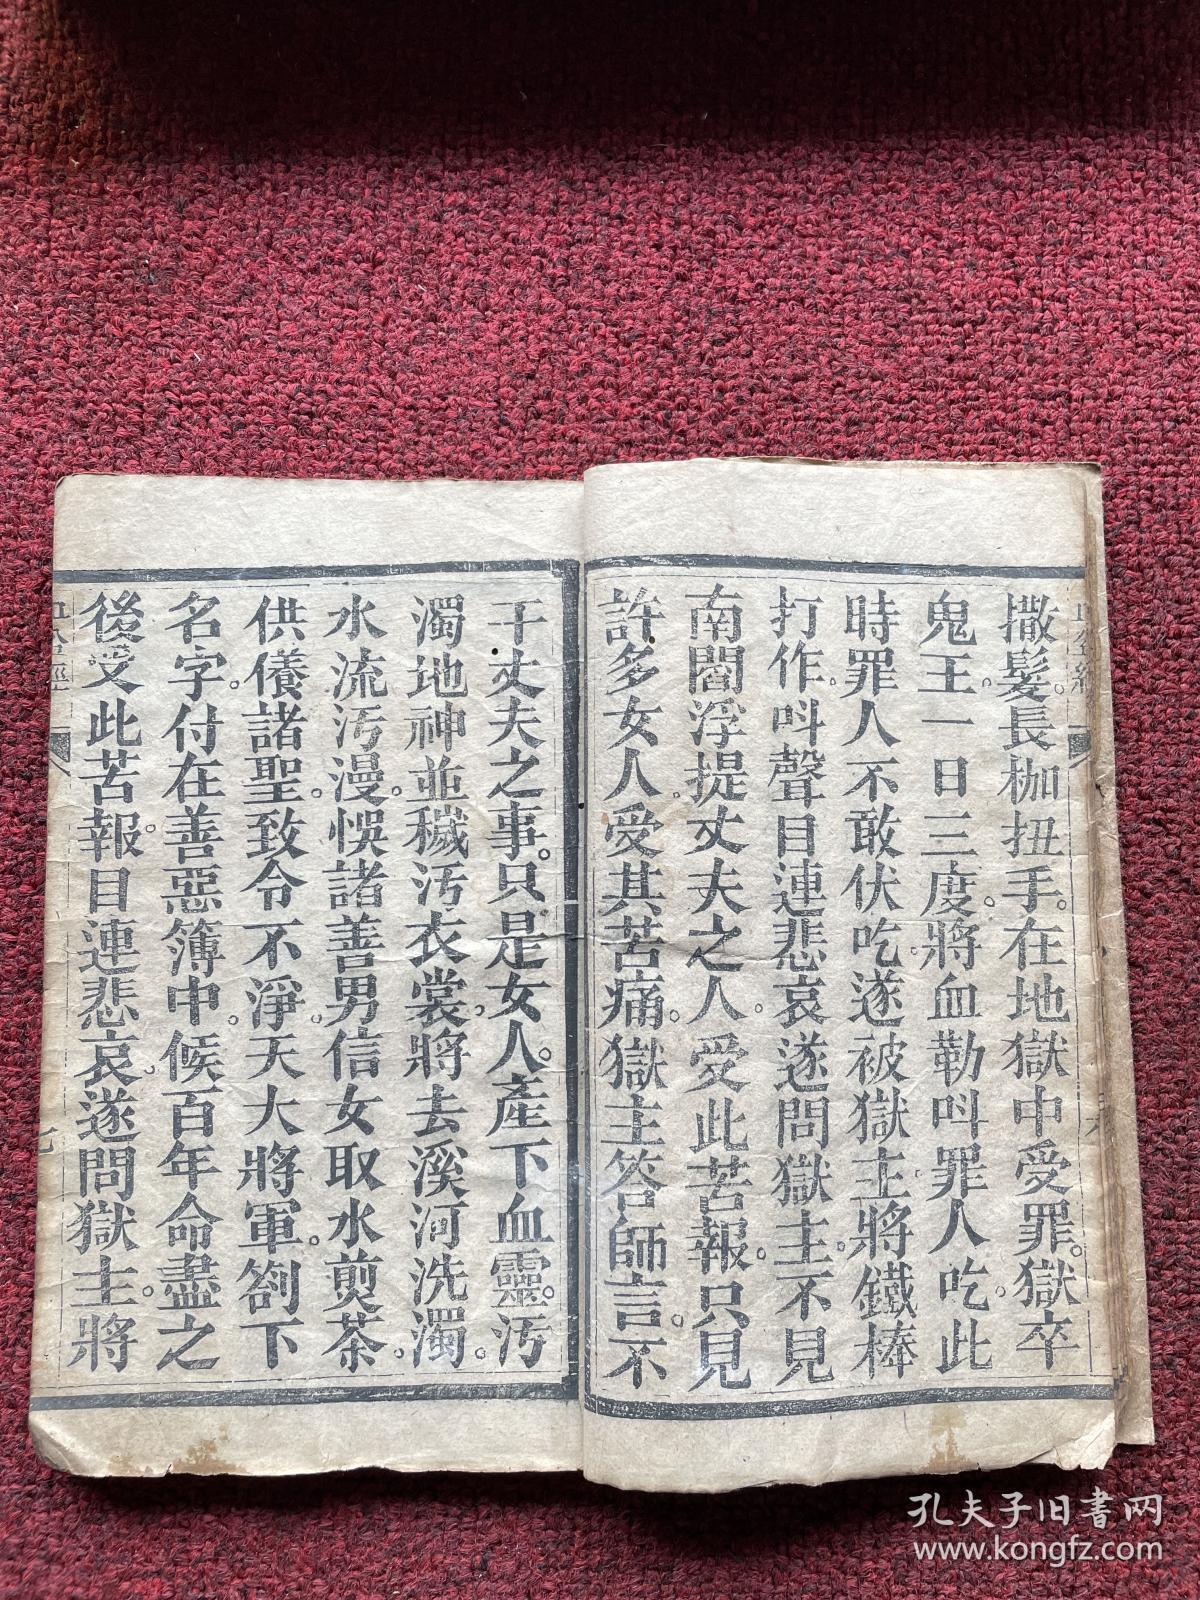 撒髮長枷扭手。在地獄中受罪。獄卒
鬼王。一日三度。將血勒呌罪人吃。此
時罪人不敢伏吃。遂被獄主。將鐵棒
打作。呌聲目連悲哀。遂問獄主。不見
南閻浮提丈夫之人。受此苦報。只見
許多女人。受其苦痛。獄主答師言。不
干丈夫之事。只是女人。產下血靈。污
濁地神。並穢污衣裳。將去溪河洗濁。
水流污漫。悞諸善男信女。取水煎茶。
供養諸聖。致令不淨。天大將軍。劄下
名字。付在善惡簿中。候百年命盡之
後。受此苦報。目連悲哀。遂問獄主。將
血盆經
孔夫子旧书网
www.kongfz.com